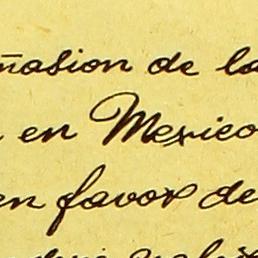 ñasion de la
en Mexico
en favor de